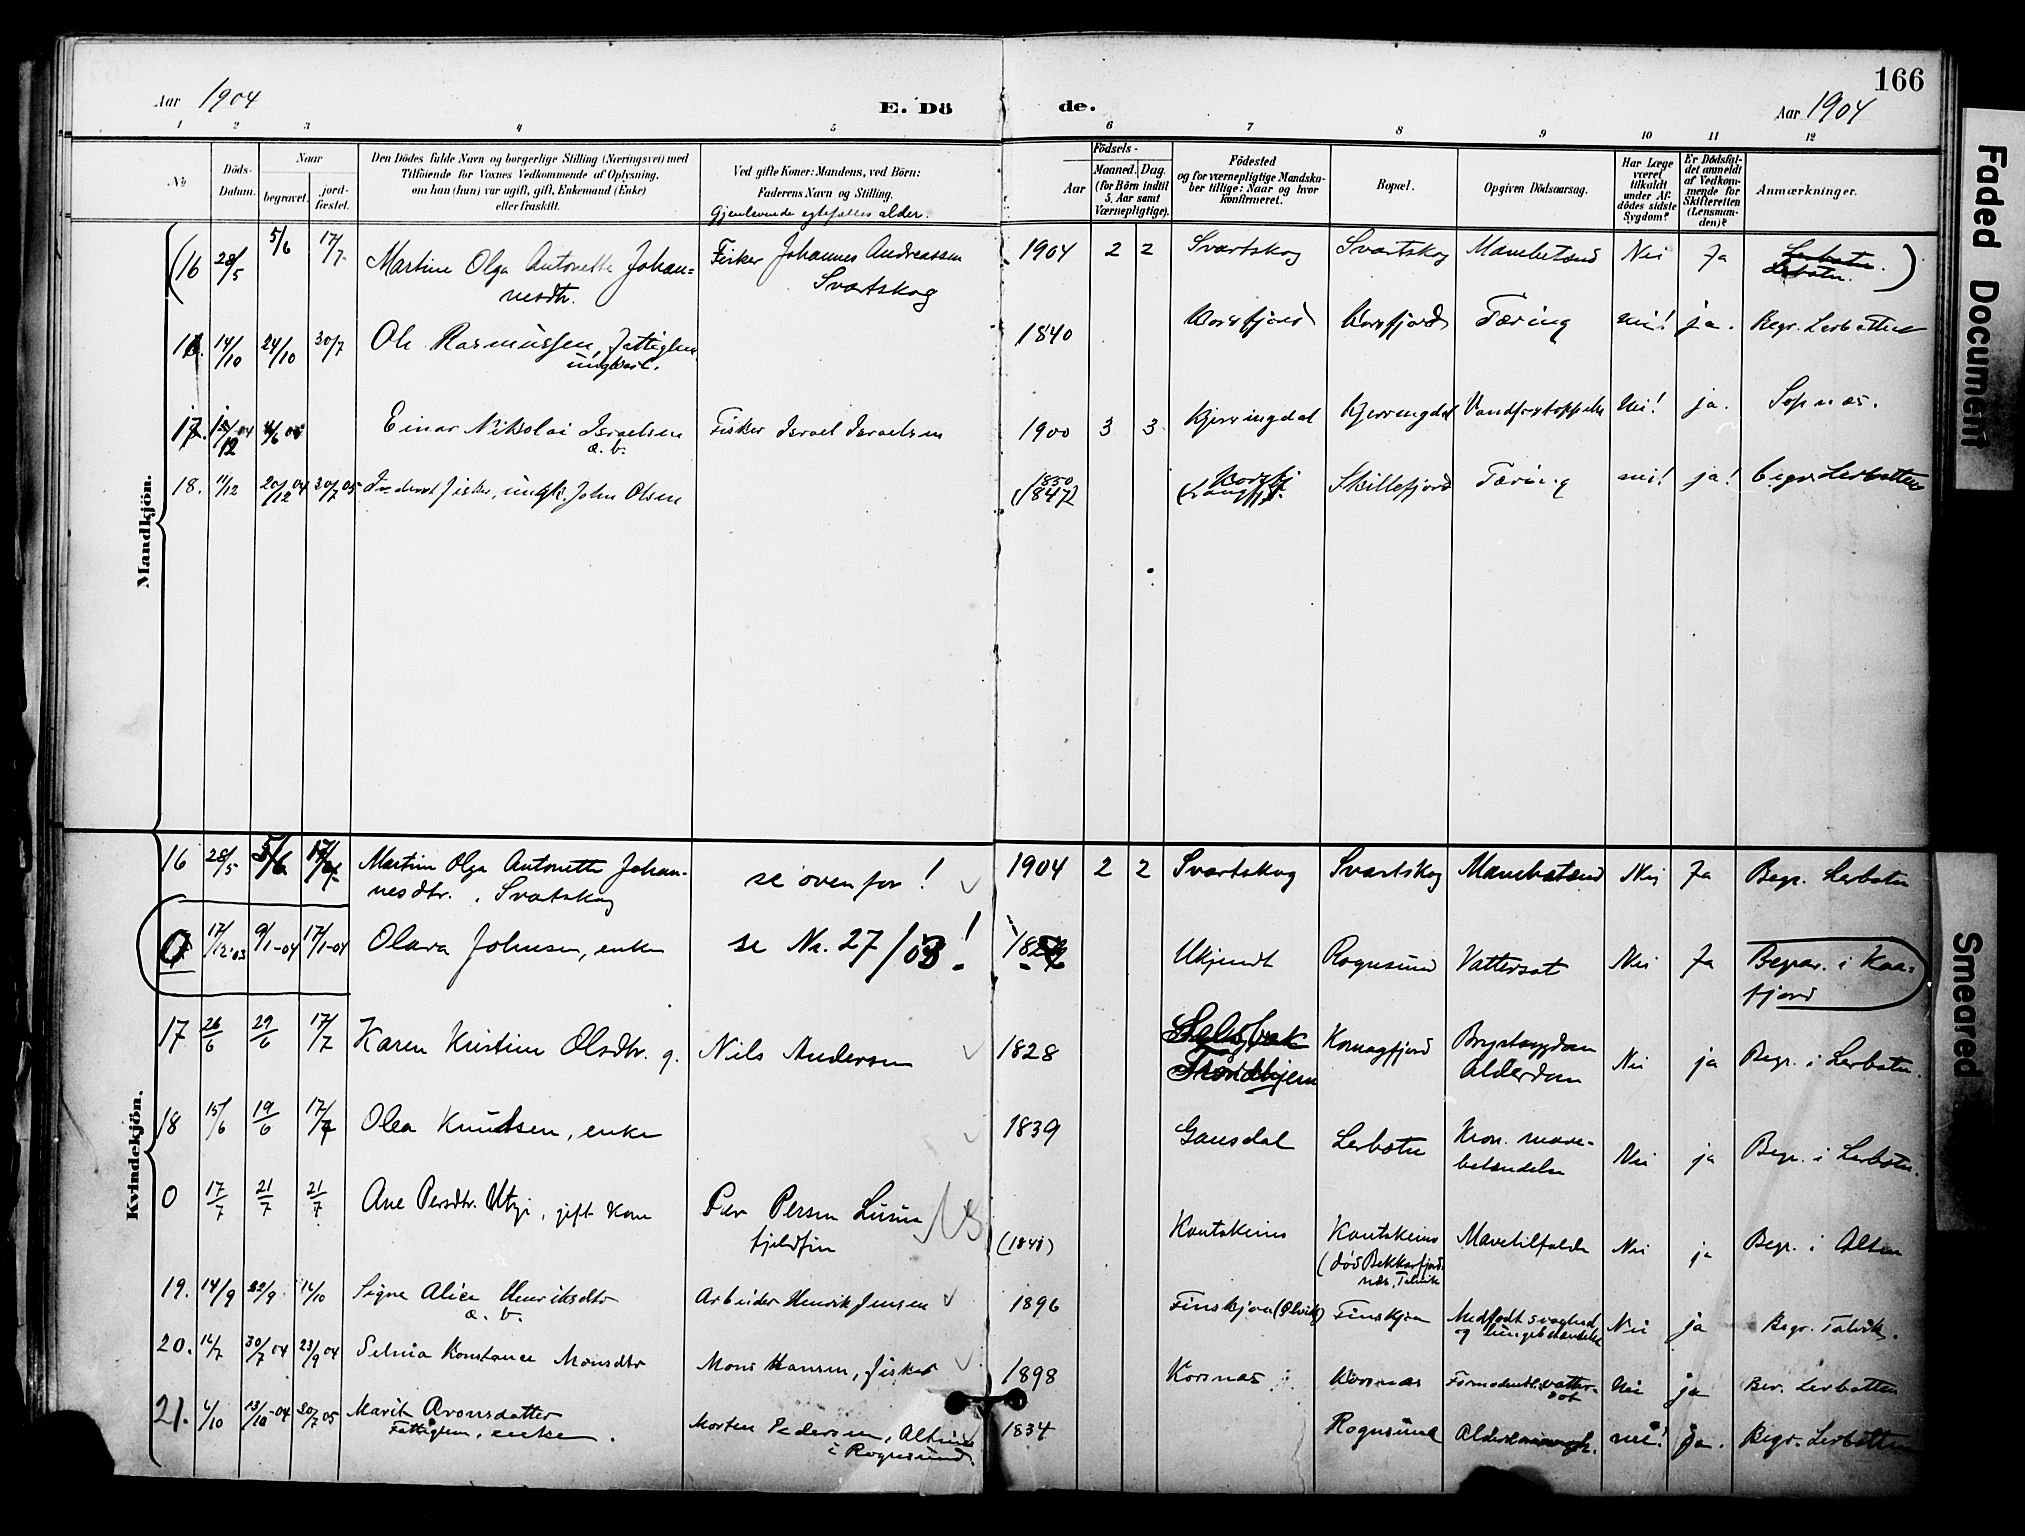 166
Aar 1904
E. Dö
de.
Aar 1904
1 2 3 4 5 6 7 8 9 10 11 12
No
Döds-Datum.
Naar
begravet.
jord-fæstet.
Den Dödes fulde Navn og borgerlige Stilling (Næringsvei) med
Tilföiende for Voxnes Vedkommende af Oplysning,
om han (hun) var ugift, gift, Enkemand (Enke)
eller fraskilt.
Ved gifte Koner: Mandens, ved Börn:
Faderens Navn og Stilling.
Gjenlevende egtefælles alder.
Födsels-
Aar
Maaned. Dag.
(for Börn indtil
5. Aar samt
Værnepligtige).
Födested
og for værnepligtige Mandska-
ber tillige: Naar og hvor
konfirmeret.
Bopæl.
Opgiven Dödsaarsag.
Har Læge
været
tilkaldt
under Af-
dödes sidste
Sygdom?
Er Dödsfal-
det anmeldt
af Vedkom-
mende for
Skifteretten
(Lensman-
den)?
Anmærkninger.
Mandkjön.
(16 28/5 5/6 17/7 Martine Olga Antonette Johan= Fisker Johannes Andreassen 1904 2 2 Svartskog Svartskog Mavebetænd Nei Ja Lerbotn
nesdtr. Svartskog Lerbotn.)
16. 14/10 24/10 30/7 Ole Rasmussen, Fattiglem, 1840 Korsfjord Korsfjord Tæring nei! ja. Begr. Lerbotten
ungkarl.
17. 12 Einar Nikolai Israelsen Fisker Israel Israelsen 1900 3 3 Kjerringdal Kjerringdal Vandforstoppelse Nei! ja. Sopnæs.
a. b.
18. 11/12 20/12 04 30/7 05 Inderst fisker, ungk. John Olsen 1850 (1847) Korsfj (Langfj). Skillefjord Tæring nei! ja! begr. Lerbotten
Kvindekjön.
16 28/5 5/6 17/7 Martine Olga Antonette Johan- se ovenfor! 1904 2 2 Svartskog Svartskog Mavebetænd Nei Ja Begr. Lerbotn
nesdtr., Svartskog
0 17/12-03 9/1-04 17/1-04 Olava Johnsen, enke se Nr. 27/03! Ukjendt Rognsund Vattersot Nei Ja Begrav. i Kaa-
fjord
17 26/6 29/6 17/7 Karen Kristine Olsdtr. g. Nils Andersen 1828 Trondhjem Komagfjord Brystsygdom Nei ja Begr. i Lerbotn.
Alderdom
18 15/6 19/6 17/7 Olea Knudsen, enke 1839 Gausdal Lerbotn Kron. mave- Nei ja Begr. i Lerbotn.
betændelse
0 17/7 21/7 21/7 Ane Persdtr. Utsi, gift kone Per Persen (1848) Kautokeino Kautokeino Mavetilfælde Nei ja Begr. i Alten
fjeldfin (död Bekkarfjord
næs, Talvik
19. 14/9 22/9 16/10 Signe Alice Henriksdtr Arbeider Henrik Jensen 1896 Finskjøn (Ølvik) Finskjøn Medfødt svaghed Nei ja Begr. Talvik.
a. b. og lungebetændelse
20. 16/7 30/7 04 23/9 04 Selma Konstance Monsdtr Mons Hansen, fisker 1898 Korsnæs Korsnæs Formodentl. vatter- Nei ja Ber. Lerbotten
sot
21. 6/10 13/10-04 30/7 05 Marit Aronsdatter Morten Pedersen, Altnes 1834 Rognsund nei! ja. Begr. Lerbotten
Fattiglem, enke. i Rognsund.
Faded Document
Smeared